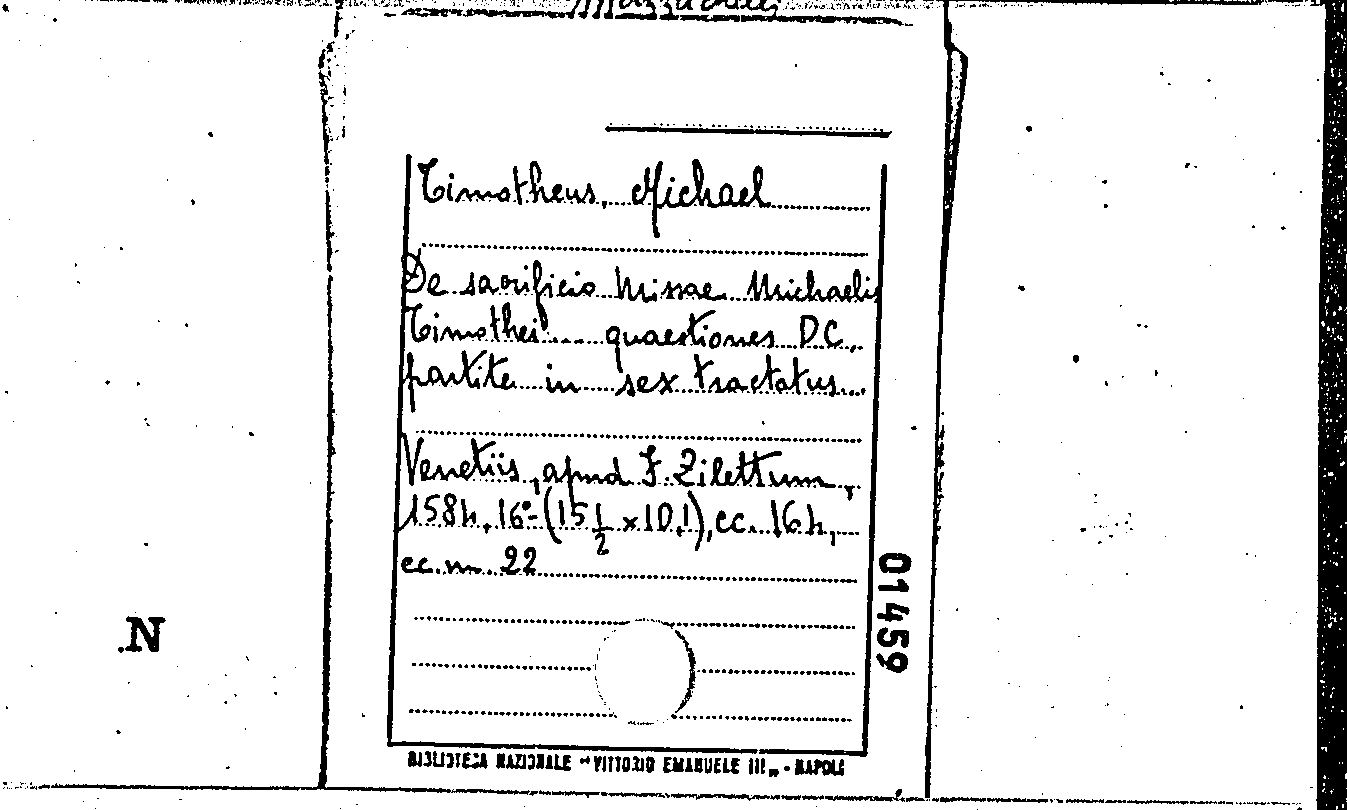 Timotheus, Michael
De sacrificio Missae Michaelis
Timothei... quaestiones DC,
partite in sex tractatus...
Venetiis, apud F. Zilettum,
1584, 16°-(15 1/2 x10,1), cc. 164,
cc. m. 22
01459
.N
BIBLIOTECA NAZIONALE "VITTORIO EMANUELE III" - NAPOLI